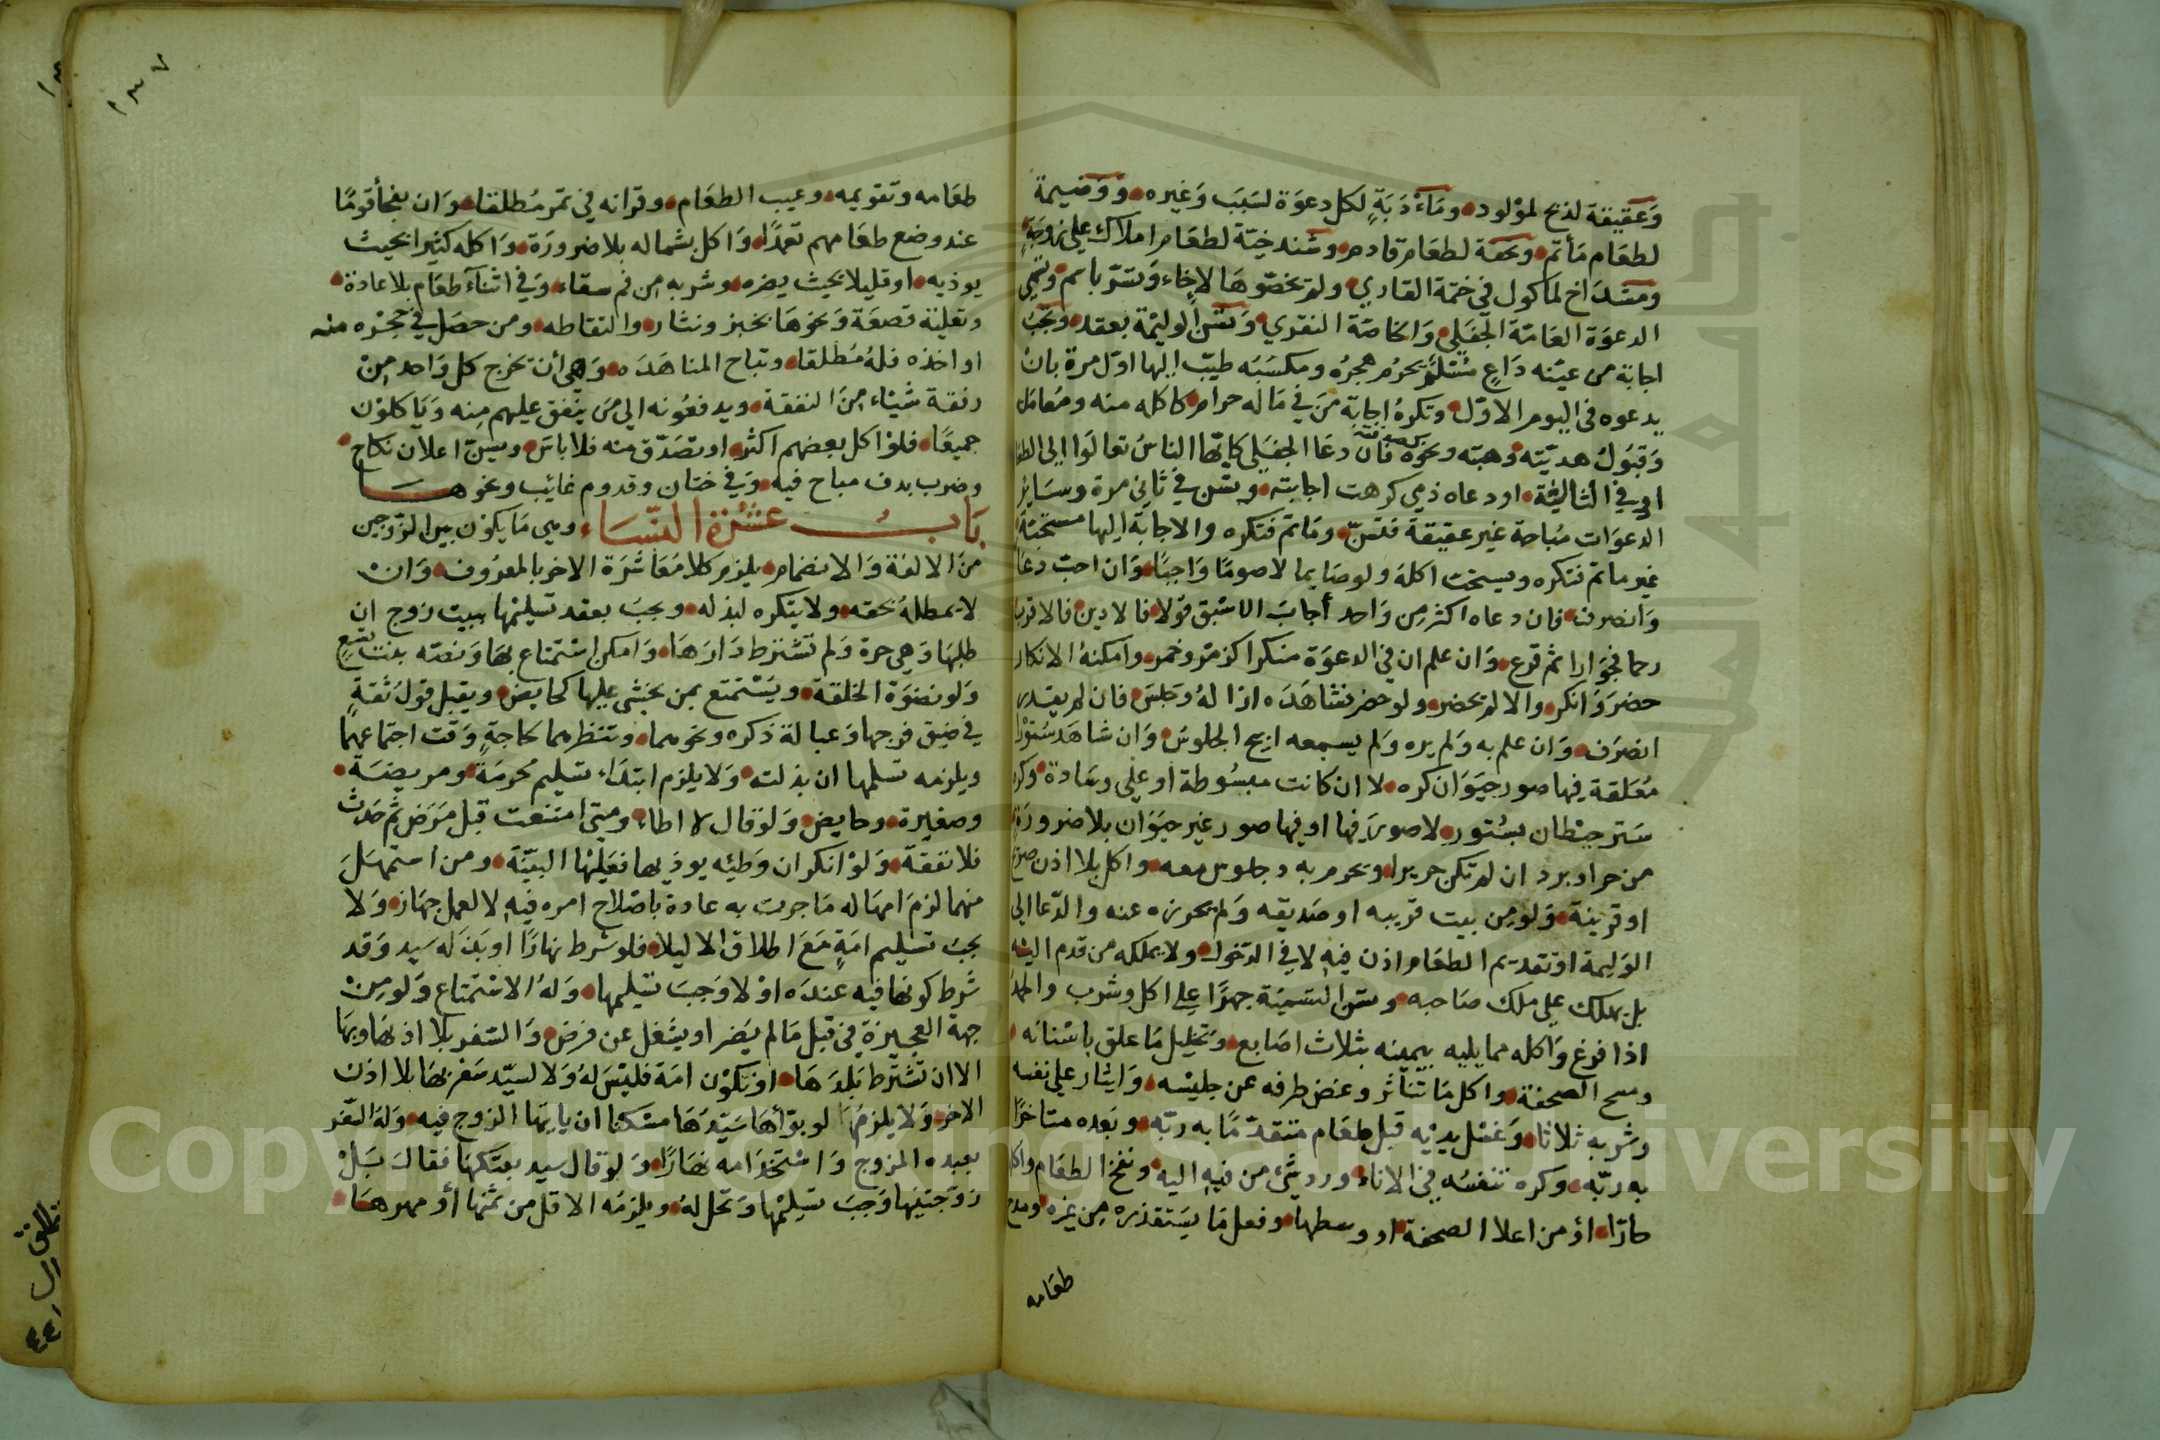 وَعَقيقة لذبح لمولود ومَأْدَبَةٍ لكل دعوَة لسَبَب وَغيره ووَضيمة
لطعَام مَأتم وتحفة لطعَام قادم وشندخيّة لطعَام املاك على زوجَةٍ
ومشدَاخ لماكول في ختمة القاري ولم يخصّوهَا لاخاء وَتسرّ باسم وتسمى
الدعوَة العَامّة الجَفَلى وَالخاصّة النقري وَتسن الوليمة بعقد وَتجبُ
اجابة من عينه دَاعٍ مُسْلم يحرُم هجرُه ومكسَبَه طيّب اليها اوّل مرة بانْ
يدعوه في اليوم الاوّل وتكرهُ اجابَة مَنْ في مَاله حرام كاكله منه ومُعَامَلته
وَقبُولُ هديّته وهبته ونحوه فان دعَا الجفَلى كايّها الناسُ تعالوَا الى الطعام
او في الثالثة او دعاه ذمي كرهت اجابته وتسن في ثاني مرة وسَايرُ
الدعوَات مُبَاحة غير عقيقة فتسنّ ومَاتم فتكره والاجابة اليها مستحبّة
غير ماتم فتكره ويستحب اكله ولو صَايما لا صومًا وَاجبًا وَان احبّ دعَا
وَانصرف فان دعاه اكثر مِن وَاحد أجابَ الاسْبق قولا فالادين فالاقرب
رحما فجوَارا ثم قرع وَان علم ان في الدعوَة منكرا كزمر وخمر وامكنهُ الانكار
حضرَ وَانكر والا لم يحضر ولو حضر فشَاهَدَه ازَالهُ وجلسَ فان لم يقدر
انصرَف وَان علم به وَلم يره وَلم يسمعه ابيح الجلوسُ وَان شاهَد سُتوْرًا
مُعَلقة فيها صور حيَوَان كره لا ان كانت مبسُوطة او على وسَادة وكره
سَتر حيْطان بسُتور لا صورَ فيها او فيها صور غير حيَوَان بلا ضرورَة
من حر او برد ان لم تكن حريرا وتحرم به وجلوس معه واكل بلا اذن صريح
او قرينة وَلو مِن بيت قريبه او صَديقه وَلم يحرزه عنه والدّعا الى
الوَليمة او تقديم الطعَام اذن فيه لا في الدّخول ولا يملكه من قدم اليه
بل يهلك على ملك صَاحبه وتسن التسميَة جهرًا على اكل وشرب والحمد
اذا فرغ وَاكله مما يليه بيمينه بثلاث اصَابع وتخليل مَا علق باسْنانه
ومسح الصحفة واكل مَا تناثر وغض طرفه عن جليسه وَايثار على نفسه
وشربه ثلاثا وَغسْل يديْه قبل طعَام متقدّمًا به ربّه وبَعده متاخرًا
به ربّه وكره تنفسُه في الاناء ورد شئ من فيه اليه ونفخ الطعَام واكله
حارّا اوْ من اعلا الصحفة او وسطها وفعل مَا يسَتقذره مِن غيره ومدح
طعَامه
١٣٧
طعَامه وتقويمه وعيب الطعَام وقرانه في تمر مُطلقا وَان يفجأ قومًا
عند وضع طعَامهم تعمدًا وَاكل بشماله بلا ضرورَة وَاكله كثيرا بحيث
يوذيه او قليلا بحيث يضره وشربه مِن فم سقاء وَفي اثنآء طعَام بلا عادة
وتعلية قصعَة وَنحوهَا بخبز ونثار والتقاطه ومن حصَل في حِجْره منه
او اخذه فلهُ مُطلقا وتباح المناهَدَه وَهي أن تخرج كل وَاحد مِنْ
رفقة شيْاء مِنَ النفقة ويدفعُونه الى مَن ينْفق عليهم مِنه وَيَاكلوْن
جميعًا فلوْ اكل بعضهم اكثر او تصَدّق منه فلا باسَ ويسنّ اعلان نكاح
وضرب بدف مباح فيه وَفي ختان وقدوم غايب ونحوهــا
بَابُ عشْرَة النسَاء وهي مَا يكوْن بين الزوجين
منَ الالفَة وَالانضمَام يلزم كلا مُعَاشرَة الاخر بالمعرُوف وَانْ
لا يمطلهُ بحقه ولا يتكره لبذله ويجبَ بعقد تسليمُها ببيت زوج ان
طلبهَا وَهي حرة وَلم تشترط دَارَهَا وَامكن اسْتمتاع بهَا وَنصّه بنت تسْعٍ
وَلو نضوَة الخلقة ويَسْتمتع بمن يخشى عليها كحايض ويقبل قولُ ثقةٍ
في ضِيق فرجها وَعبالة ذكره ونحوهما وتنظرهما لحاجةٍ وَقت اجتماعهمَا
ويلزمه تسلمها ان بذلته وَلا يلزم ابتدَاء تسْليم مُحرمَة ومريضَة
وصغيرة وحايض وَلوْ قال لا اطاء ومتى امتنعت قبل مَرَض ثم حَدثَ
فلا نفقة وَلوْ انكر ان وَطئه يوذيها فعَليْها البيّنة ومن اسْتمهَلَ
منهما لزمَ امهَاله مَا جرت به عادة باصْلاح امره فيهِ لا لعمل جهَاز وَلا
يجبَ تسْليم امَةٍ مَعَ اطلاق الا ليلا فلو شرط نهارًا او بَذله سَيد وَقد
شرط كونها فيه عندَه اوْ لا وَجبَ تسْليمها وَلهُ الاسْتمتاع وَلو مِنْ
جهة العجيزة في قبل مَا لم يَضر او يشْغل عن فرَض وَالسّفر بلا اذنهَا وبهَا
الا ان تشترط بَلدَهَا اوْ تكوْن امَة فليْسَ لهُ وَلا لسيّد سَفر بهَا بلا اذن
الاخر وَلا يلزمُهَا لو بوّأهَا سَيّدهَا مسْكنا ان ياتيهَا الزوج فيه وَلهُ السّفر
بعبده المزوج وَاسْتخدَامه نهَارًا وَلو قال سيد بعتكهَا فقالَ بَلْ
زوّجتنِيها وَجبَ تسْليْمها وَتحل لهُ ويلزمُه الاقل من ثمنها أو مهرهَـا
Copyright © King Saud University